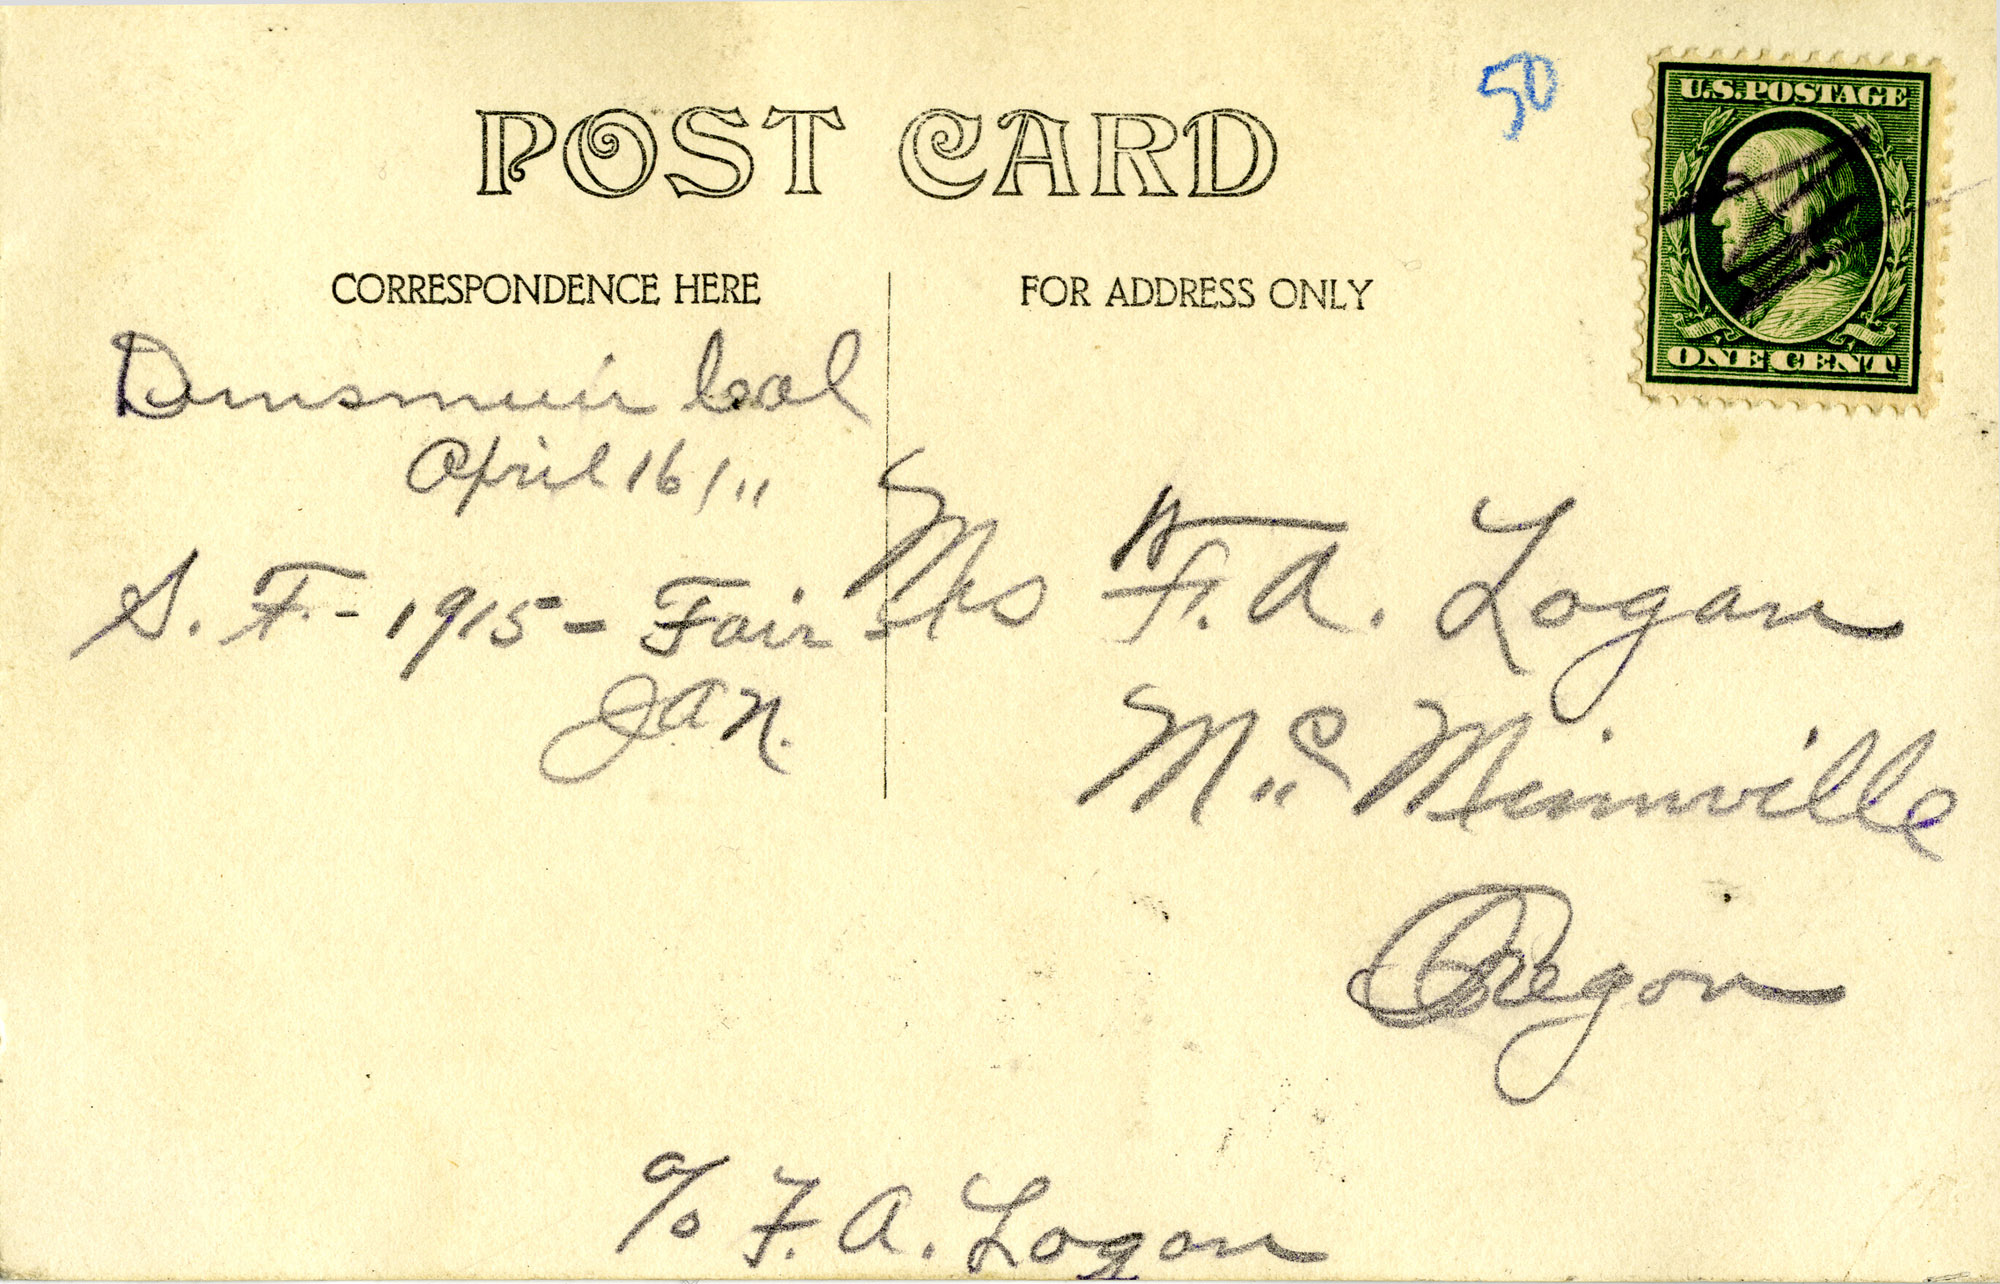 50
U.S. POSTAGE
POST CARD
CORRESPONDENCE HERE
FOR ADDRESS ONLY
ONE CENT
Dunsmuir Cal
April 16/11
S. F. - 1915 - Fair
Jan.
Mrs F. A. Logan
Mc Minnville
Oregon
c/o F. A. Logan